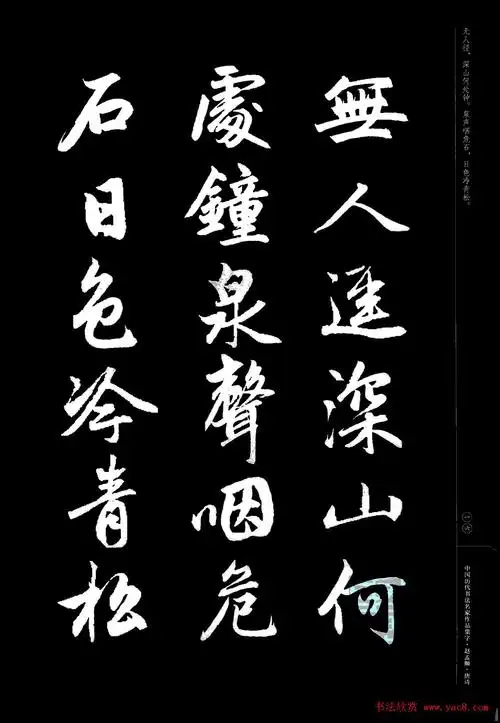 無人逕深山何
處鐘泉聲咽危
石日色冷青松
无人径，深山何处钟。泉声咽危石，日色冷青松。
一六
中国历代书法名家作品集字·赵孟頫·唐诗
书法欣赏 www.yac8.com